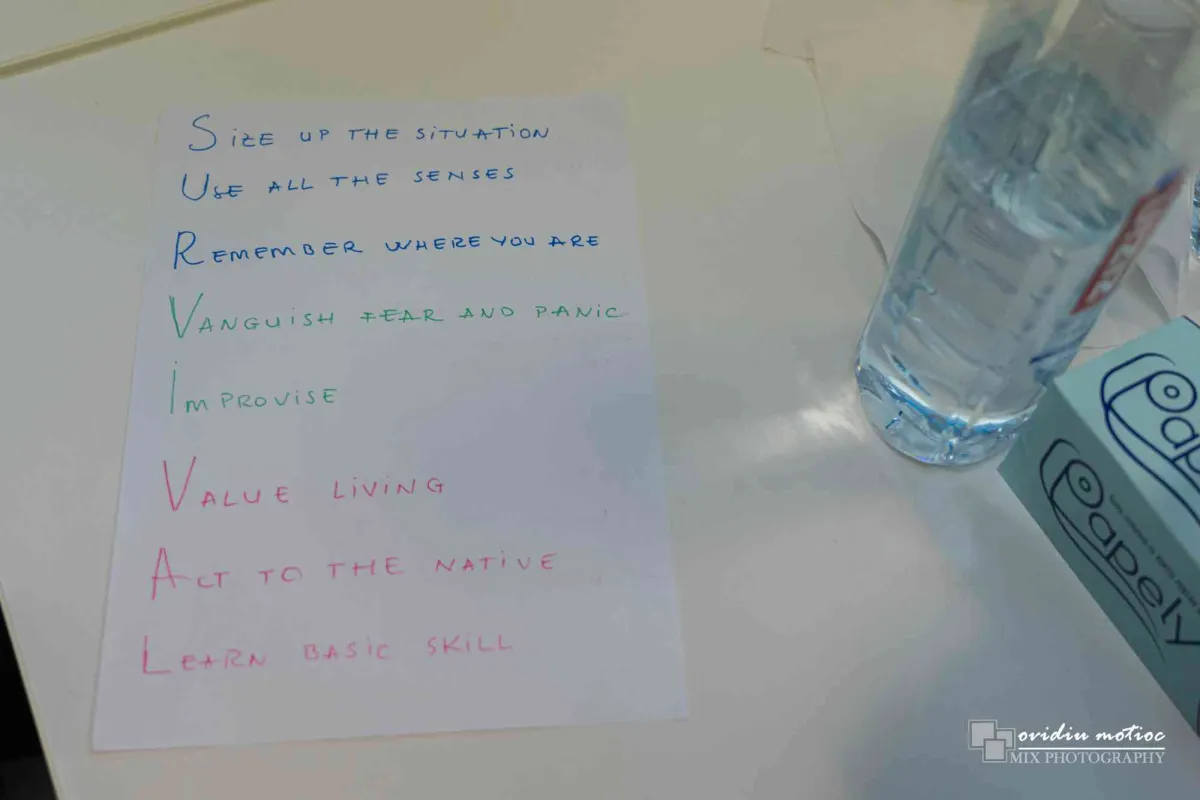 SIZE UP THE SITUATION
USE ALL THE SENSES
REMEMBER WHERE YOU ARE
VANGUISH FEAR AND PANIC
IMPROVISE
VALUE LIVING
ACT TO THE NATIVE
LEARN BASIC SKILL
Papely
ovidiu motioc
MIX PHOTOGRAPHY